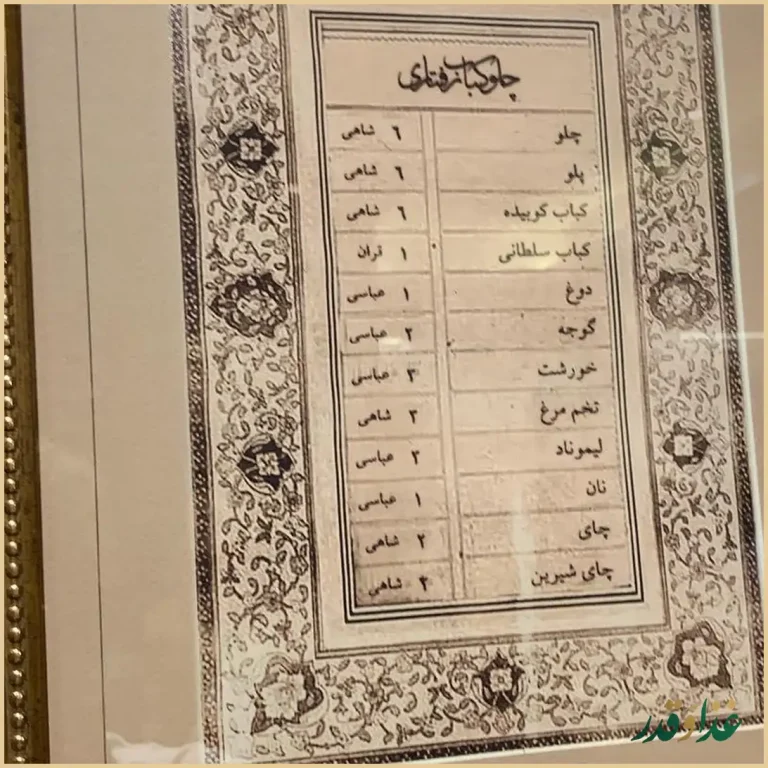 چلوکباب رفتاری
چلو ۶ شاهی
پلو ۶ شاهی
کباب کوبیده ۶ شاهی
کباب سلطانی ۱ قران
دوغ ۱ عباسی
گوجه ۲ عباسی
خورشت ۳ عباسی
تخم مرغ ۳ شاهی
لیموناد ۲ عباسی
نان ۱ عباسی
چای ۲ شاهی
چای شیرین ۳ شاهی
غذا و قدر